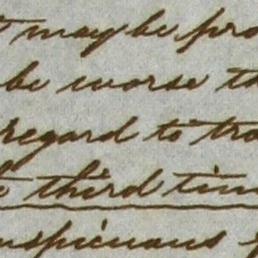 may be pro
be worse th
regard to tra
third tim
nspicuous